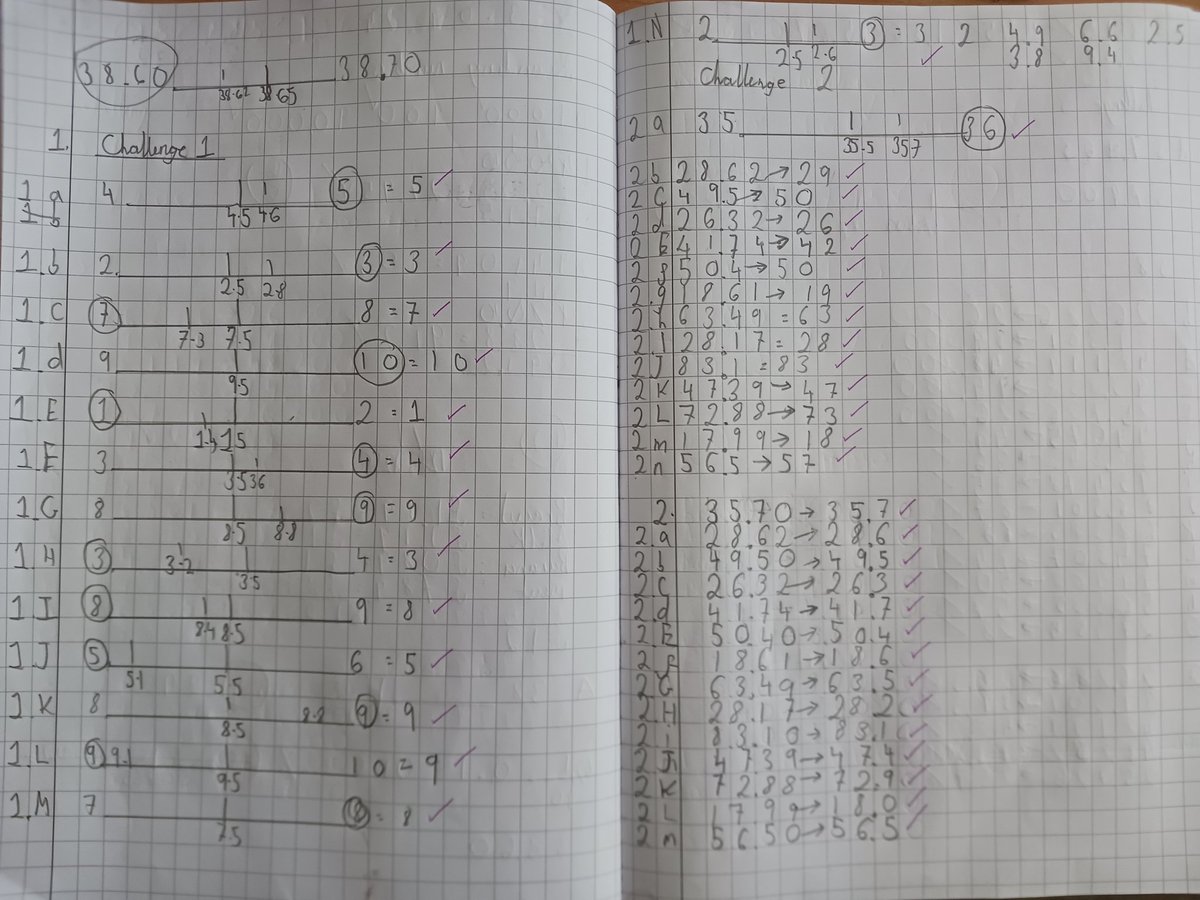 38.60 38.70
38.62 38.65
1. Challenge 1
1a 4 5 = 5
1b 4.5 4.6
1.b 2 3 = 3
2.5 2.8
1.C 7 8 = 7
7.3 7.5
1.d 9 10 = 10
9.5
1.E 1 2 = 1
1.4 1.5
1.F 3 4 = 4
3.5 3.6
1.G 8 9 = 9
8.5 8.8
1.H 3 4 = 3
3.2 3.5
1.I 8 9 = 8
8.4 8.5
1.J 5 6 = 5
5.1 5.5
1.K 8 9 = 9
8.5
1.L 9 9.1 10 = 9
9.5
1.M 7 8 = 8
7.5
1.N 2 3 = 3 2 4.9 6.6 2.5
2.5 2.6 3.8 9.4
Challenge 2
2a 35 36
35.5 35.7
2b 28.62→29
2C 49.5→50
2d 26.32→26
2E 41.74→42
2f 50.4→50
2.g 18.61→19
2h 63.49=63
2I 28.17=28
2J 83.1=83
2K 47.39→47
2L 72.88→73
2m 17.99→18
2n 56.5→57
2. 35.70→35.7
2.a 28.62→28.6
2b 49.50→49.5
2C 26.32→26.3
2.d 41.74→41.7
2.E 50.40→50.4
2f 18.61→18.6
2G 63.49→63.5
2H 28.17→28.2
2i 83.10→83.1
2J 47.39→47.4
2K 72.88→72.9
2L 17.99→18.0
2n 56.50→56.5